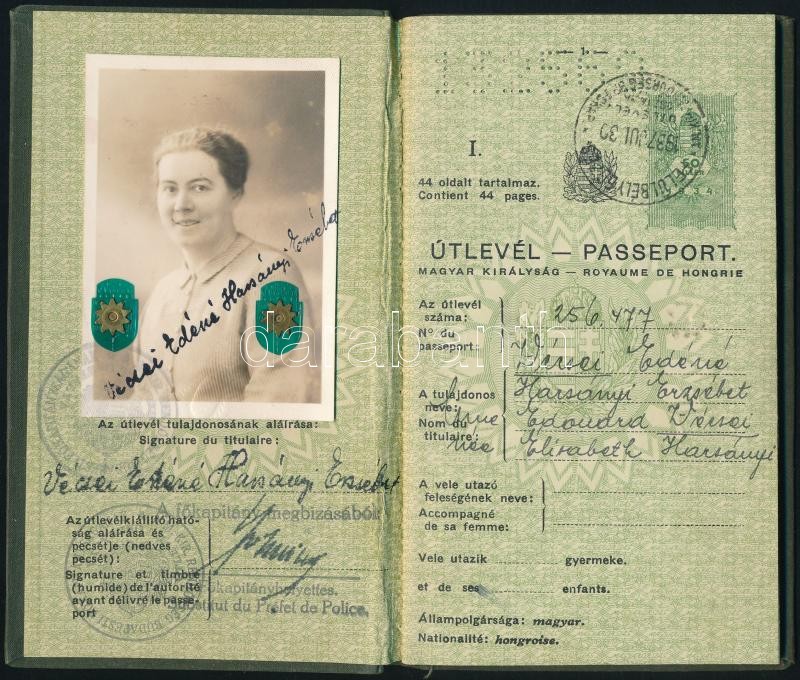 Vécsei Edéné Harsányi Erzsébet
Az útlevél tulajdonosának aláírása:
Signature du titulaire:
Vécsei Edéné Harsányi Erzsébet
A főkapitány megbízásából
Az útlevélkiállító ható-
ság aláírása és
pecsétje (nedves
pecsét):
Signature et timbre
(humide) de l'autorité
ayant délivré le passe-
port
főkapitányhelyettes.
Substitut du Préfet de Police.
— 1 —
1937 JUL 30
FELÜLBÉLY
I.
44 oldalt tartalmaz.
Contient 44 pages.
ÚTLEVÉL — PASSEPORT.
MAGYAR KIRÁLYSÁG — ROYAUME DE HONGRIE
Az útlevél
száma:
Nº du
passeport:
256.477
Vécsei Edéné
A tulajdonos
neve:
Nom du
titulaire:
Harsányi Erzsébet
Edouard Vécsei
née Elisabeth Harsányi
A vele utazó
feleségének neve:
Accompagné
de sa femme:
Vele utazik gyermeke.
et de ses enfants.
Állampolgársága: magyar.
Nationalité: hongroise.
darabanth